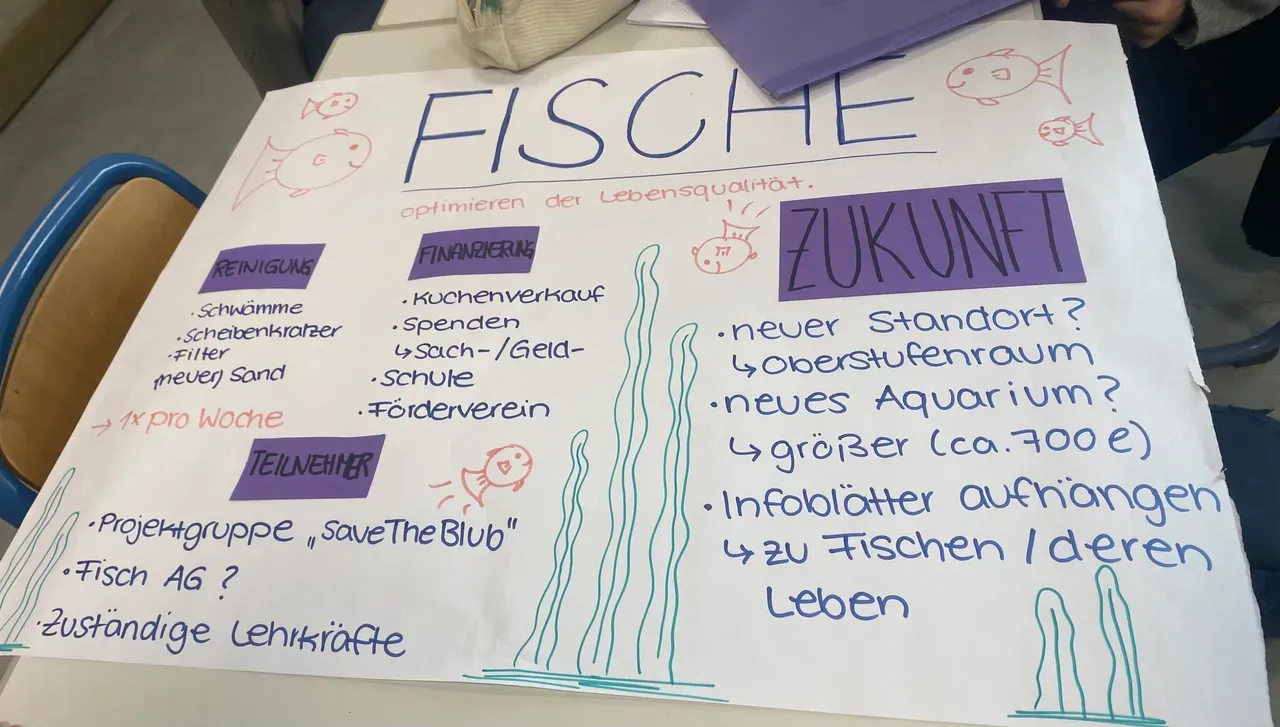 FISCHE
optimieren der Lebensqualität.
REINIGUNG
• Schwämme
• Scheibenkratzer
• Filter
(neuer) Sand
→ 1x pro Woche
FINANZIERUNG
• Kuchenverkauf
• Spenden
↳ Sach-/Geld-
• Schule
• Förderverein
TEILNEHMER
• Projektgruppe „saveTheBlub"
• Fisch AG?
• Zuständige Lehrkräfte
ZUKUNFT
• neuer Standort?
↳ Oberstufenraum
• neues Aquarium?
↳ größer (ca. 700 e)
• Infoblätter aufhängen
↳ zu Fischen / deren
Leben